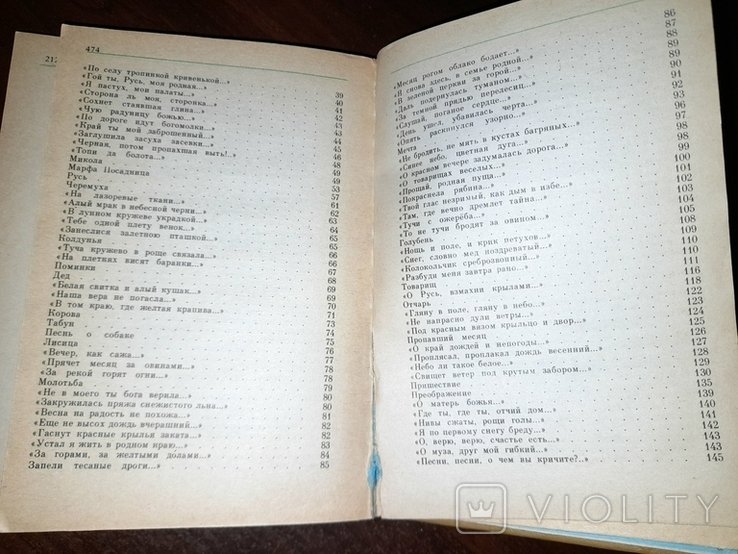 212
474
«По селу тропинкой кривенькой...»
«Гой ты, Русь, моя родная...»
«Я пастух, мои палаты...» 39
«Сторона ль моя, сторонка...» 40
«Сохнет стаявшая глина...» 41
«Чую радуницу божью...» 42
«По дороге идут богомолки...» 43
«Край ты мой заброшенный...» 43
«Заглушила засуха засевки...» 44
«Черная, потом пропахшая выть!..» 45
«Топи да болота...» 46
Микола 48
Марфа Посадница 49
Русь 49
Черемуха 53
«На лазоревые ткани...» 57
«Алый мрак в небесной черни...» 61
«В лунном кружеве украдкой...» 62
«Тебе одной плету венок...» 63
«Занеслися залетною пташкой...» 64
Колдунья 65
«Туча кружево в роще связала...» 65
«На плетнях висят баранки...» 66
Поминки 66
Дед 67
«Белая свитка и алый кушак...» 68
«Наша вера не погасла...» 69
«В том краю, где желтая крапива...» 70
Корова 71
Табун 73
Песнь о собаке 74
Лисица 75
«Вечер, как сажа...» 76
«Прячет месяц за овинами...» 78
«За рекой горят огни...» 78
Молотьба 79
«Не в моего ты бога верила...» 80
«Закружилась пряжа снежистого льна...» 80
«Весна на радость не похожа...» 81
«Еще не высох дождь вчерашний...» 82
«Гаснут красные крылья заката...» 82
«Устал я жить в родном краю...» 83
«За горами, за желтыми долами...» 84
Запели тесаные дроги...» 85
«Месяц рогом облако бодает...» 86
«Я снова здесь, в семье родной...» 87
«В зеленой церкви за горой...» 88
«Даль подернулась туманом...» 89
«За темной прядью перелесиц...» 89
«Слушай, поганое сердце...» 90
«День ушел, убавилась черта...» 91
«Опять раскинулся узорно...» 92
Мечта 93
«Не бродить, не мять в кустах багряных...» 96
«Синее небо, цветная дуга...» 97
«О красном вечере задумалась дорога...» 98
«О товарищах веселых...» 98
«Прощай, родная пуща...» 99
«Покраснела рябина...» 100
«Твой глас незримый, как дым в избе...» 101
«Там, где вечно дремлет тайна...» 102
«Тучи с ожерёба...» 103
«То не тучи бродят за овином...» 104
Голубень 105
«Нощь и поле, и крик петухов...» 108
«Снег, словно мед ноздреватый...» 109
«Колокольчик среброзвонный...» 110
«Разбуди меня завтра рано...» 110
Товарищ 111
«О Русь, взмахни крылами...» 116
Отчарь 118
«Гляну в поле, гляну в небо...» 122
«Не напрасно дули ветры...» 123
«Под красным вязом крыльцо и двор...» 124
Пропавший месяц 125
«О край дождей и непогоды...» 126
«Проплясал, проплакал дождь весенний...» 127
«Небо ли такое белое...» 128
«Свищет ветер под крутым забором...» 129
Пришествие 130
Преображение 135
«О матерь божья...» 139
«Где ты, где ты, отчий дом...» 140
«Нивы сжаты, рощи голы...» 141
«Я по первому снегу бреду...» 142
«О, верю, верю, счастье есть...» 143
«О муза, друг мой гибкий...» 143
«Песни, песни, о чем вы кричите?..» 145
VIOLITY